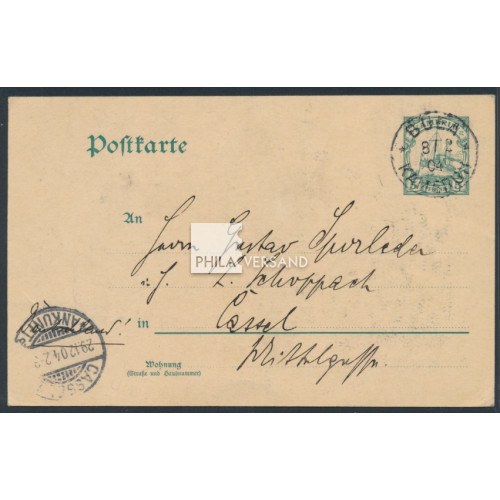 Postkarte
BUEA
KAMERUN
04
An
Herrn Gustav Sporleder
PHILA VERSAND
i. J. L. Schoppach
in Cassel
Mittelgasse.
ANKUNFT
29.12.04.
CASSEL
Wohnung
(Straße und Hausnummer)